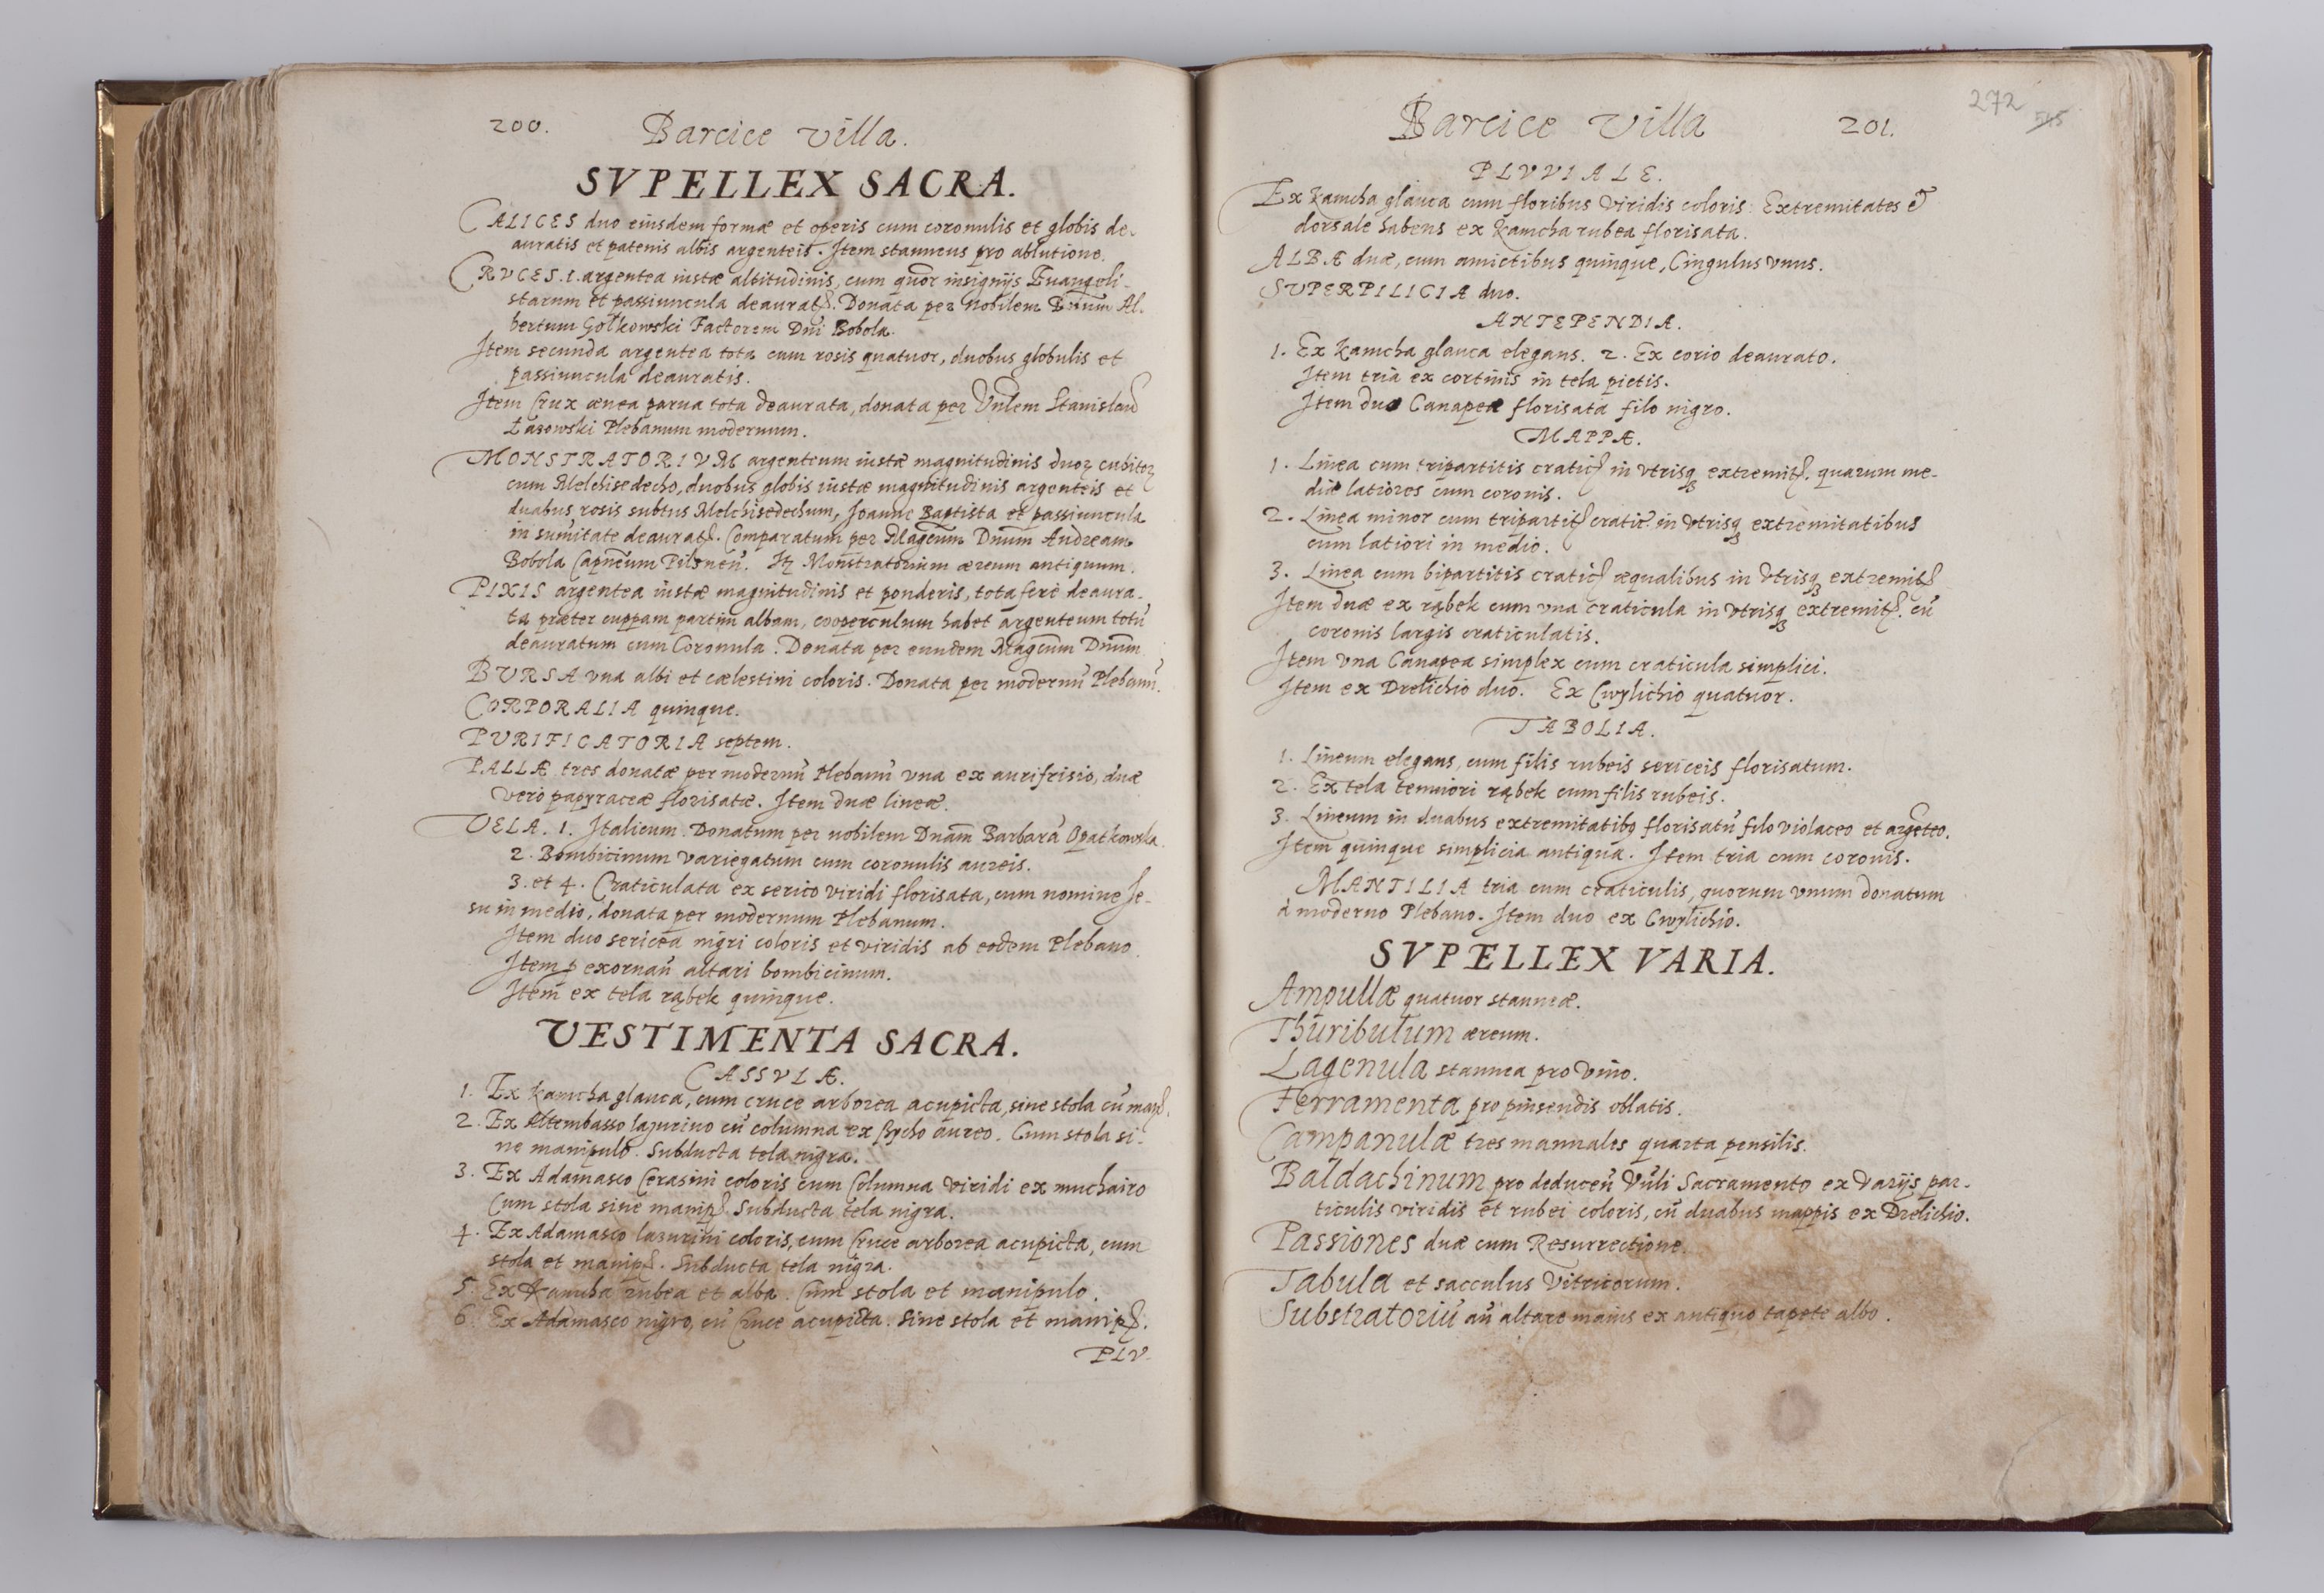 200.
Barcice villa.
SVPELLEX SACRA.
CALICES duo eiusdem formæ et operis cum coronulis et globis de-
auratis et patenis albis argenteis. Item stanneus pro ablutione.
CRVCES. 1. argentea iustæ altitudinis, cum quor insignijs Euangeli-
starum et passiuncula deaurat. Donata per Nobilem Dnum Al-
bertum Gołkowski Factorem Dni Bobola.
Item secunda argentea tota cum rosis quatuor, duobus globulis et
passiuncula deauratis.
Item Crux ænea parua tota deaurata, donata per Vnlem Stanislau
Łazowski Plebanum modernum.
MONSTRATORIVM argenteum iustæ magnitudinis duoꝝ cubitoꝝ
cum Melchisedecho, duobus globis iustæ magnitudinis argenteis et
duabus rosis subtus Melchisedechum, Joanne Baptista et passiuncula
in sumitate deaurat. Comparatum per Magcum Dnum Andream
Bobola Capneum Pilsnen. It Monstratorium æreum antiquum.
PIXIS argentea iustæ magnitudinis et ponderis, tota ferè deaura-
ta præter cuppam partim albam, cooperculum habet argenteum totū
deauratum cum Coronula. Donata per eundem Magcum Dnum
BURSA vna albi et cælestini coloris. Donata per modernū Plebanū.
CORPORALIA quinque.
PVRIFICATORIA septem.
PALLÆ tres donatæ per modernū Plebanū vna ex aurifrisio, duæ
verò papyraceæ florisatæ. Item duæ lineæ.
VELA. 1. Italicum. Donatum per nobilem Dnam Barbarā Opatkowska.
2. Bombicinum variegatum cum coronulis aureis.
3. et 4. Craticulata ex serico viridi florisata, cum nomine Je-
su in medio, donata per modernum Plebanum.
Item duo sericea nigri coloris et viridis ab eodem Plebano.
Item p exornan altari bombicinum.
Item ex tela rąbek quinque.
VESTIMENTA SACRA.
CASSVLÆ.
1. Ex kamcha glauca, cum cruce arborea acupicta, sine stola cū manip.
2. Ex Altembasso lazurino cū columna ex aureo. Cum stola si-
ne manipulo. Subducta tela nigra.
3. Ex Adamasco Cerasini coloris cum Columna viridi ex muchairo
Cum stola sine manip. Subducta tela nigra.
4. Ex Adamasco lazurini coloris, cum Cruce arborea acupicta, cum
stola et manip. Subducta tela nigra.
5. Ex Kamcha rubea et alba. Cum stola et manipulo.
6. Ex Adamasco nigro, cū Cruce acupicta. Sine stola et manip.
PLV-
Barcice villa
201.
272
545
PLVVIALE.
Ex kamcha glauca cum floribus viridis coloris. Extremitates et
dorsale habens ex kamcha rubea florisata.
ALBÆ duæ, cum amictibus quinque, Cingulus vnus.
SVPERPILICIA duo.
ANTEPENDIA.
1. Ex kamcha glauca elegans. 2. Ex corio deaurato.
Item tria ex cortinis in tela pictis.
Item duo Canapea florisata filo nigro.
MAPPÆ.
1. Linea cum tripartitis cratic in vtrisq extremit. quarum me-
diæ latiores cum coronis.
2. Linea minor cum tripartit cratic. in vtrisq extremitatibus
cum latiori in medio.
3. Linea cum bipartitis cratic æqualibus in vtrisq extremit
Item duæ ex rąbek cum vna craticula in vtrisq extremit. cū
coronis largis craticulatis.
Item vna Canapea simplex cum craticula simplici.
Item ex Drelichio duo. Ex Cwylichio quatuor.
TABOLIA.
1. Lineum elegans, cum filis rubeis sericeis florisatum.
2. Ex tela tenuiori rąbek cum filis rubeis.
3. Lineum in duabus extremitatibꝫ florisatū filo violaceo et argēteo.
Item quinque simplicia antiqua. Item tria cum coronis.
MANTILIA tria cum craticulis, quorum vnum donatum
à moderno Plebano. Item duo ex Cwylichio.
SVPELLEX VARIA.
Ampullæ quatuor stanneæ.
Thuribulum æreum.
Lagenula stannea pro vino.
Ferramenta pro pinsendis oblatis.
Campanulæ tres manuales quarta pensilis.
Baldachinum pro deducen Vnli Sacramento ex varijs par-
ticulis viridis et rubei coloris, cū duabus mappis ex Drelichio.
Passiones duæ cum Resurrectione.
Tabula et sacculus Vitricorum.
Substratoriū an altare maius ex antiquo tapete albo.